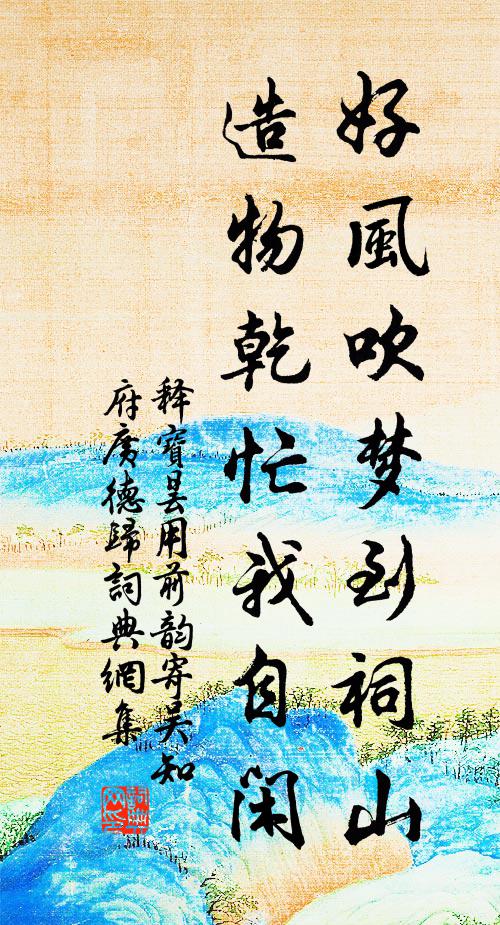 好風吹梦到祠山
造物乾忙我自闲
释寶昙用前韵寄吴知
府廣德歸詞典網集